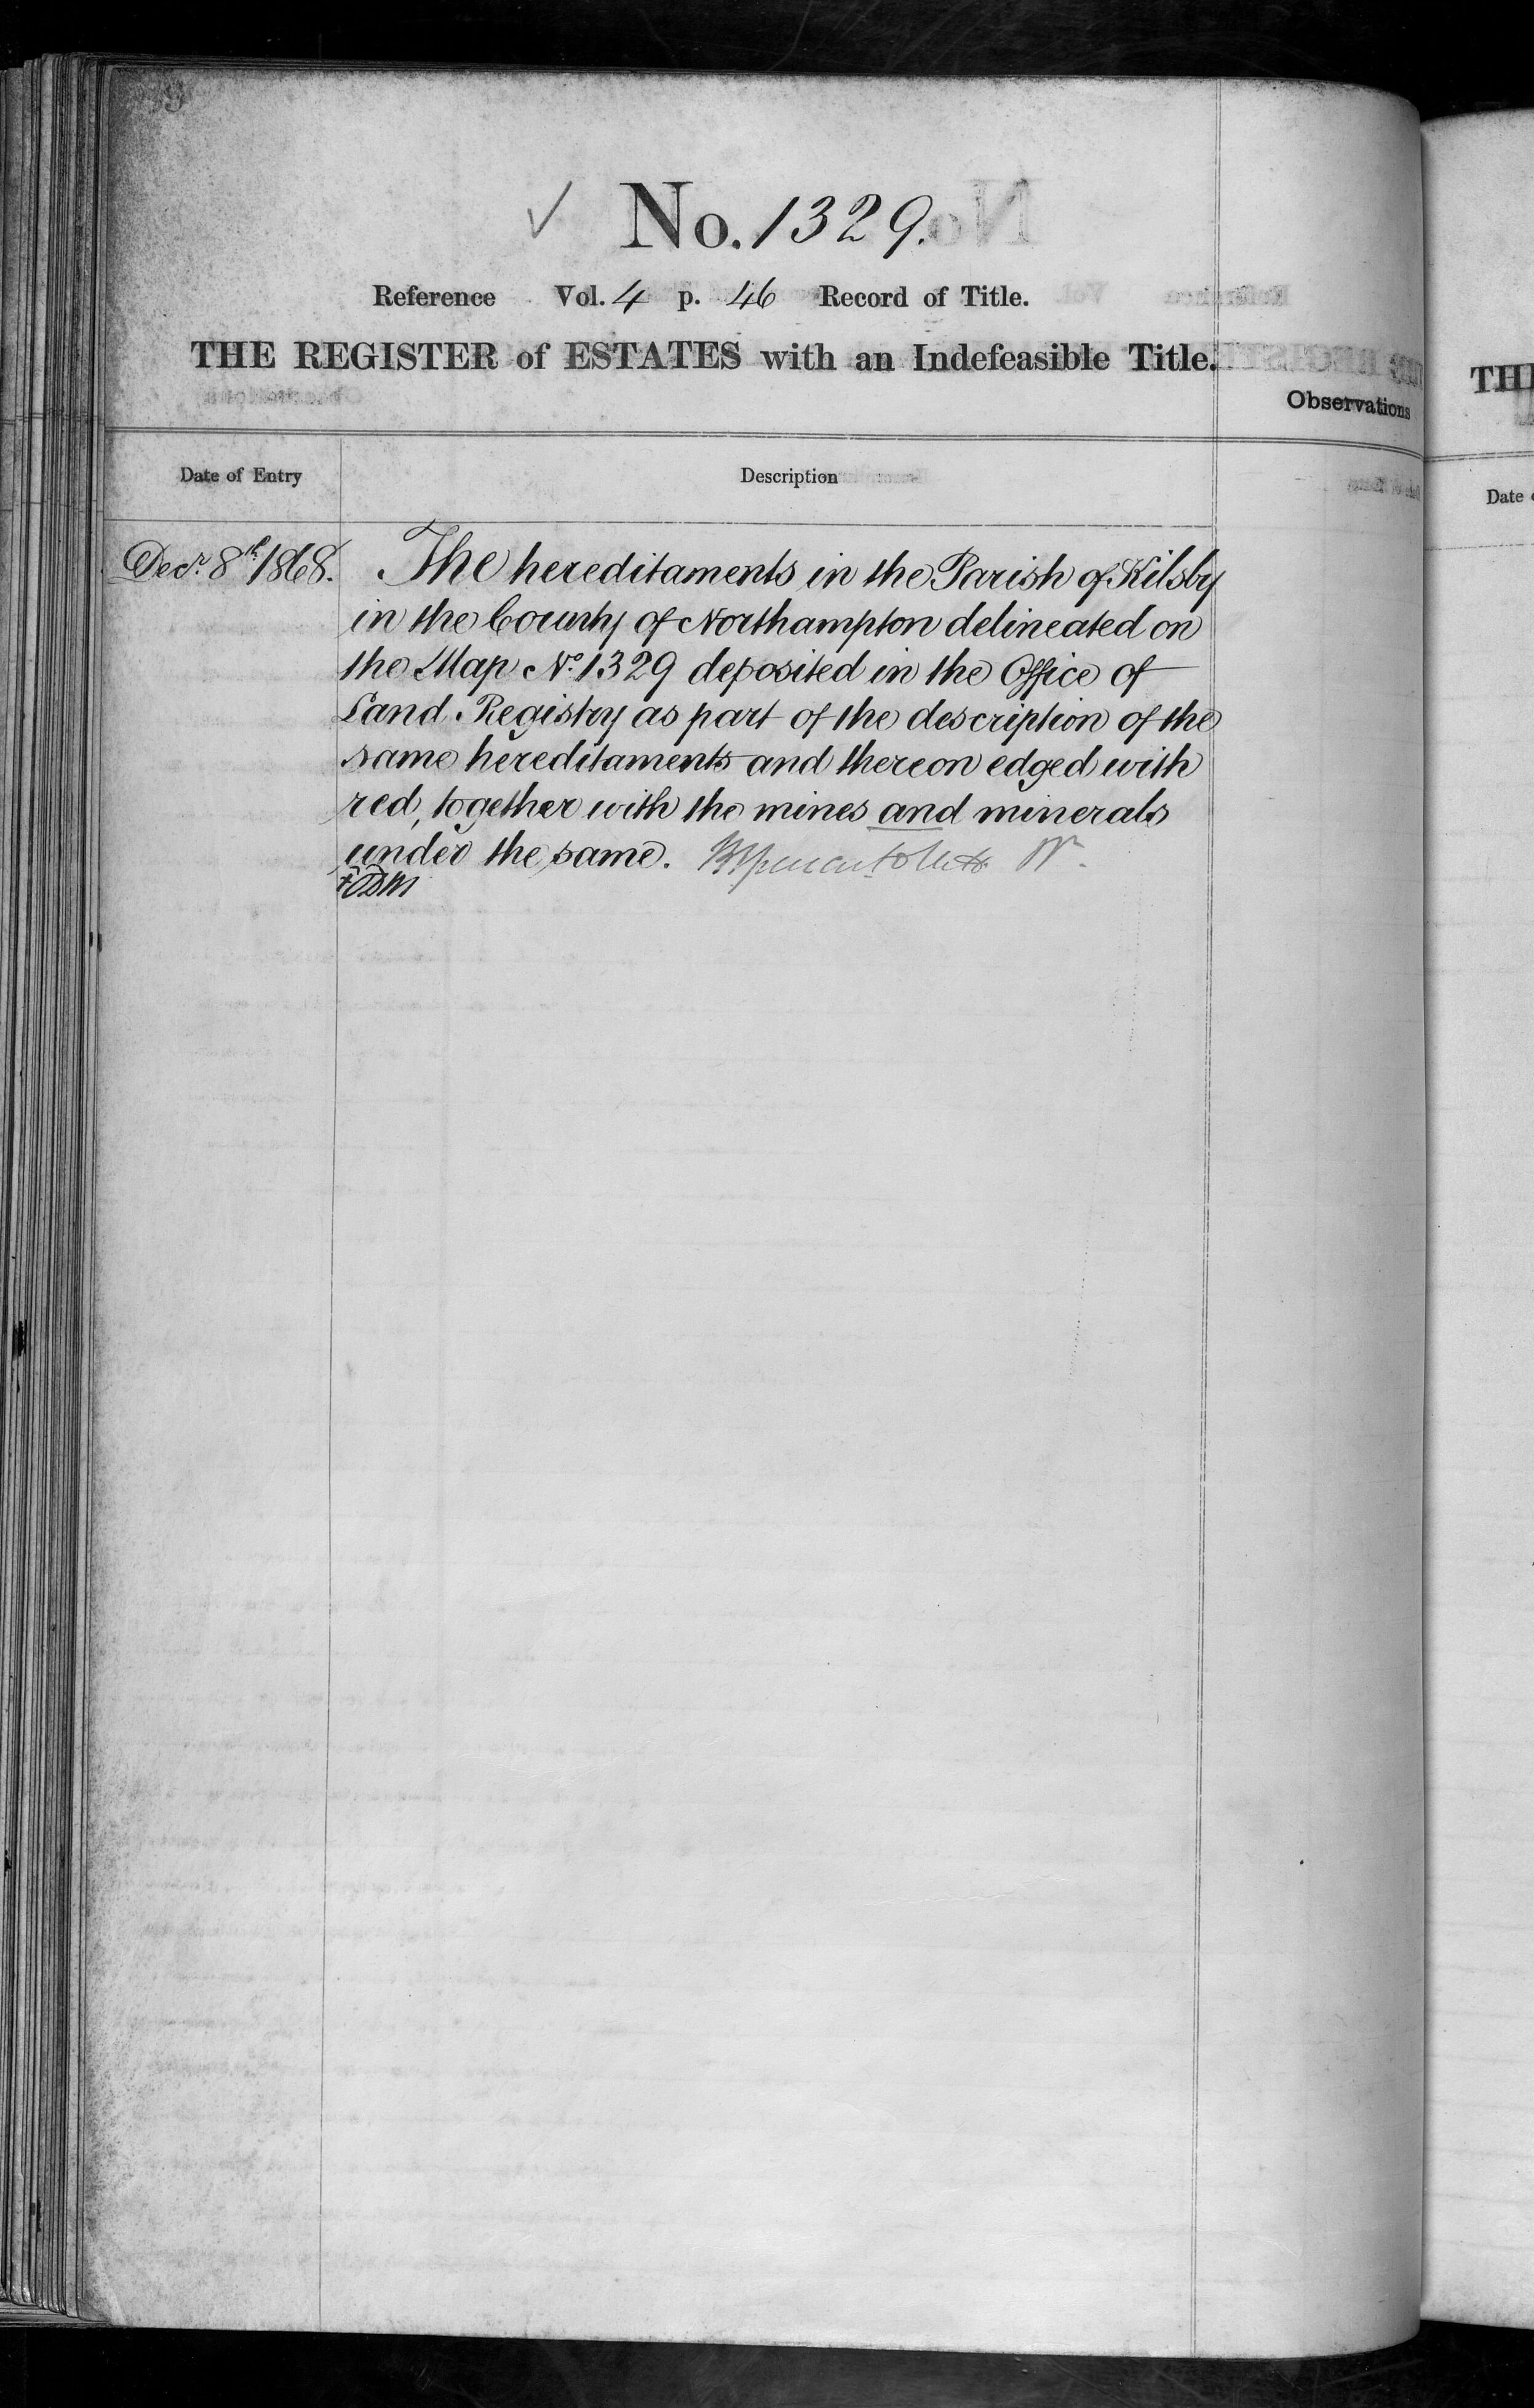 ✓ No. 1329.
Reference Vol. 4 p. 46 Record of Title.
THE REGISTER of ESTATES with an Indefeasible Title.
Observations
Date of Entry Description
Decr. 8th 1868. The hereditaments in the Parish of Kilsby
in the County of Northampton delineated on
the Map No. 1329 deposited in the Office of
Land Registry as part of the description of the
same hereditaments and thereon edged with
red, together with the mines and minerals
under the same.
TH
Date